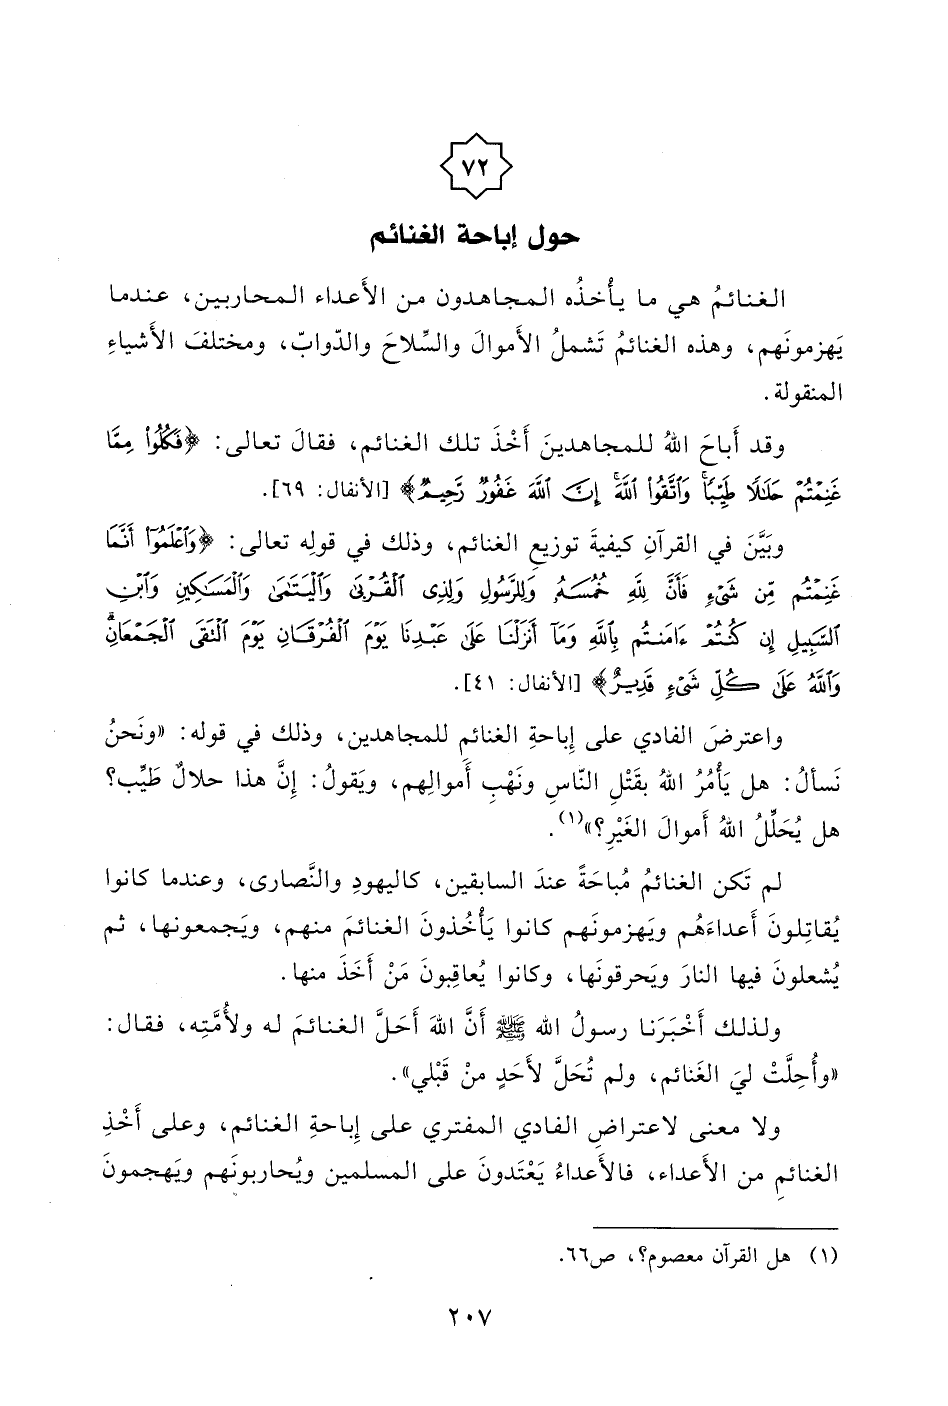 ٧٢
حول إباحة الغنائم
الغنائمُ هي ما يأْخذُه المجاهدون من الأَعداء المحاربين، عندما
يَهزمونَهم، وهذه الغنائمُ تَشملُ الأموالَ والسِّلاحَ والدّوابّ، ومختلفَ الأشياءِ
المنقولة.
وقد أَباحَ اللهُ للمجاهدينَ أَخْذَ تلك الغنائم، فقالَ تعالى: ﴿فَكُلُوا۟ مِمَّا
غَنِمْتُمْ حَلَٰلًا طَيِّبًا ۚ وَٱتَّقُوا۟ ٱللَّهَ ۚ إِنَّ ٱللَّهَ غَفُورٌ رَّحِيمٌ﴾ [الأنفال: ٦٩].
وبَيَّنَ في القرآنِ كيفيةَ توزيعِ الغنائم، وذلك في قولِه تعالى: ﴿وَٱعْلَمُوٓا۟ أَنَّمَا
غَنِمْتُم مِّن شَىْءٍ فَأَنَّ لِلَّهِ خُمُسَهُۥ وَلِلرَّسُولِ وَلِذِى ٱلْقُرْبَىٰ وَٱلْيَتَٰمَىٰ وَٱلْمَسَٰكِينِ وَٱبْنِ
ٱلسَّبِيلِ إِن كُنتُمْ ءَامَنتُم بِٱللَّهِ وَمَآ أَنزَلْنَا عَلَىٰ عَبْدِنَا يَوْمَ ٱلْفُرْقَانِ يَوْمَ ٱلْتَقَى ٱلْجَمْعَانِ ۗ
وَٱللَّهُ عَلَىٰ كُلِّ شَىْءٍ قَدِيرٌ﴾ [الأنفال: ٤١].
واعترضَ الفادي على إباحةِ الغنائمِ للمجاهدين، وذلك في قوله: «ونَحنُ
نَسألُ: هل يَأْمُرُ اللهُ بقَتْلِ النّاسِ ونَهْبِ أَموالِهم، ويَقولُ: إنَّ هذا حلالٌ طَيِّب؟
هل يُحَلِّلُ اللهُ أموالَ الغَيْرِ؟»(١).
لم تَكن الغنائمُ مُباحَةً عندَ السابقين، كاليهودِ والنَّصارى، وعندما كانوا
يُقاتِلونَ أَعداءَهُم ويَهزمونَهم كانوا يَأْخُذونَ الغنائمَ منهم، ويَجمعونها، ثم
يُشعلونَ فيها النارَ ويَحرقونَها، وكانوا يُعاقِبونَ مَنْ أَخَذَ منها.
ولذلك أَخْبَرَنا رسولُ الله ﷺ أَنَّ اللهَ أَحَلَّ الغنائمَ له ولأُمَّتِه، فقال:
«وأُحِلَّتْ ليَ الغَنائم، ولم تُحَلَّ لأَحَدٍ منْ قَبْلي».
ولا معنى لاعتراضِ الفادي المفتري على إباحةِ الغنائم، وعلى أَخْذِ
الغنائمِ من الأَعداء، فالأَعداءُ يَعْتَدونَ على المسلمين ويُحاربونَهم ويَهجمونَ
(١) هل القرآن معصوم؟، ص٦٦.
٢٠٧